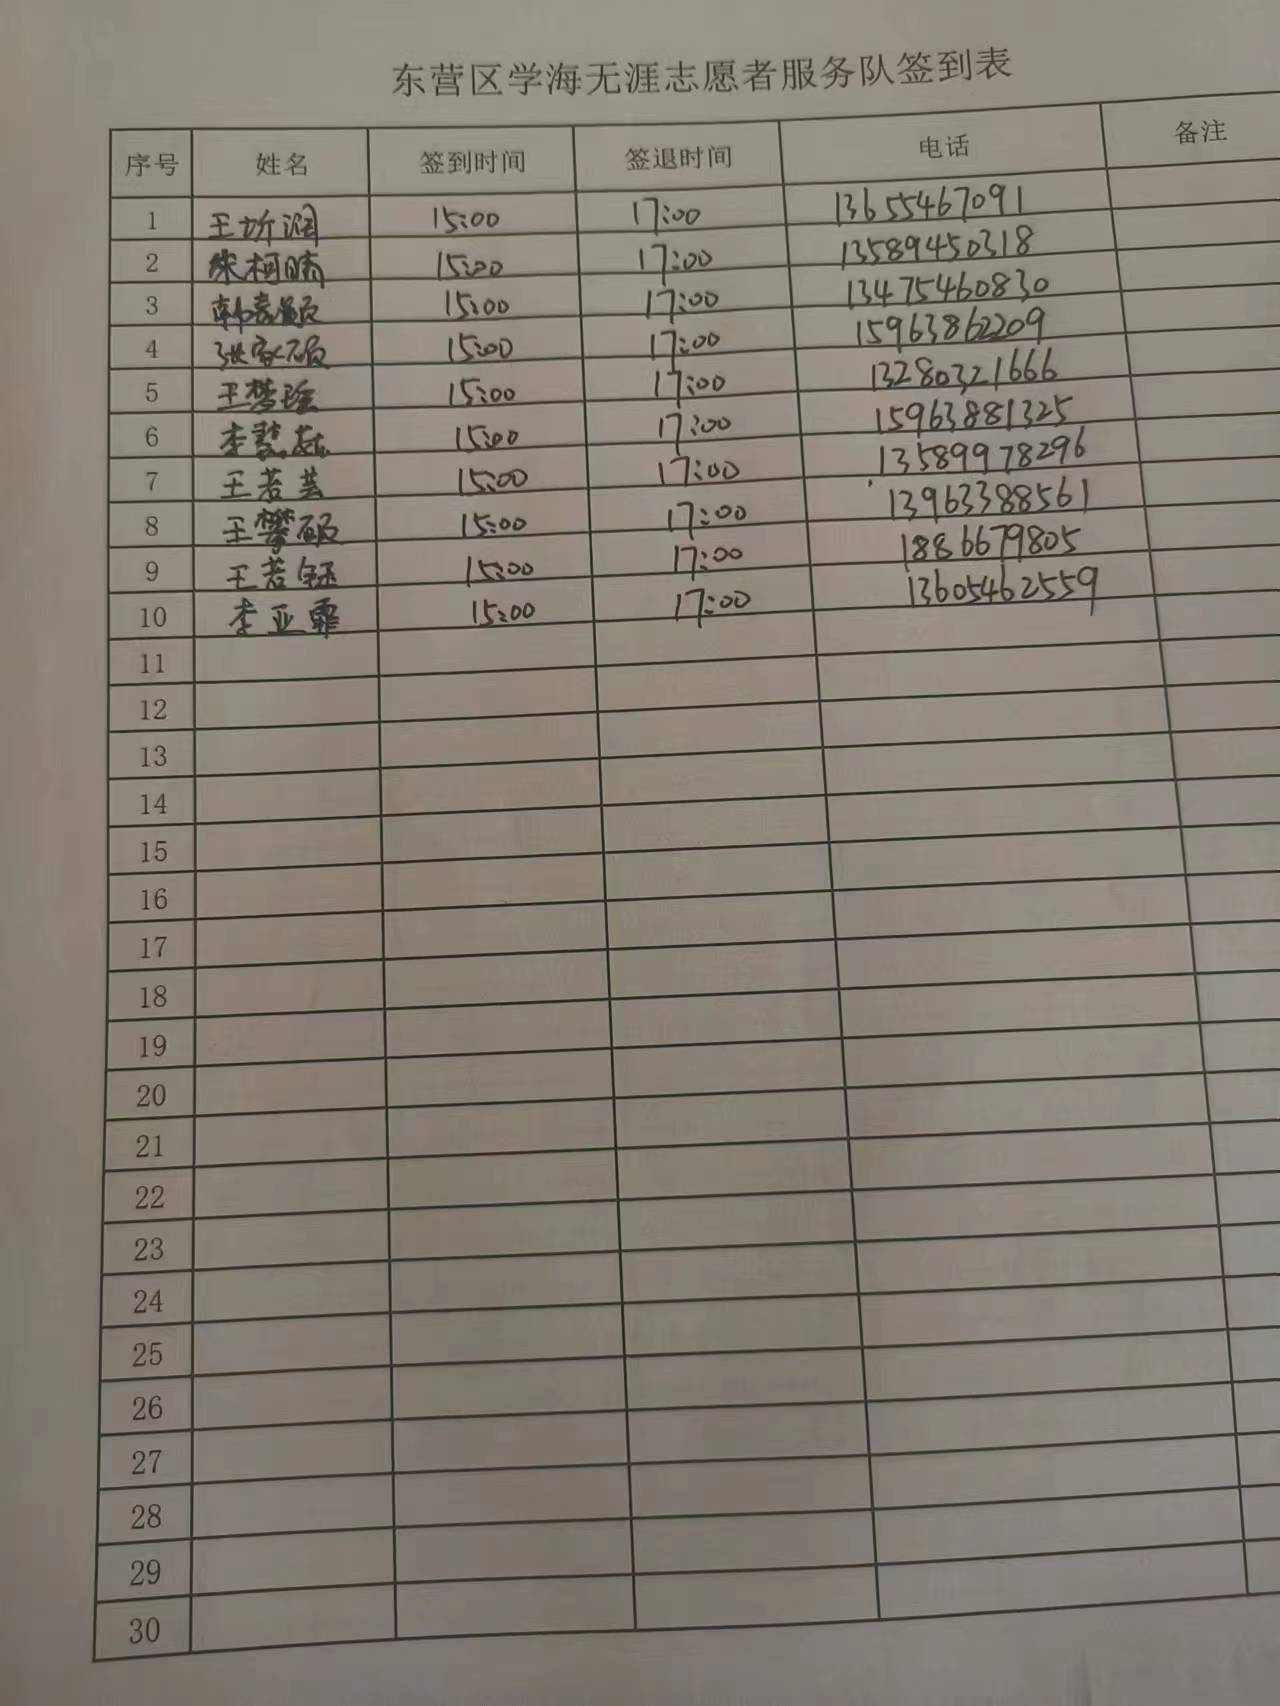 东营区学海无涯志愿者服务队签到表
序号 姓名 签到时间 签退时间 电话 备注
1 王圻润 15:00 17:00 13655467091
2 柯晴 15:00 17:00 13589450318
3 韩 15:00 17:00 13475460830
4 张家硕 15:00 17:00 15963862209
5 王梦瑶 15:00 17:00 13280321666
6 李慧 15:00 17:00 15963881325
7 王若芸 15:00 17:00 13589978296
8 王攀硕 15:00 17:00 13963388561
9 王若钰 15:00 17:00 18866679805
10 李亚霏 15:00 17:00 13605462559
11
12
13
14
15
16
17
18
19
20
21
22
23
24
25
26
27
28
29
30